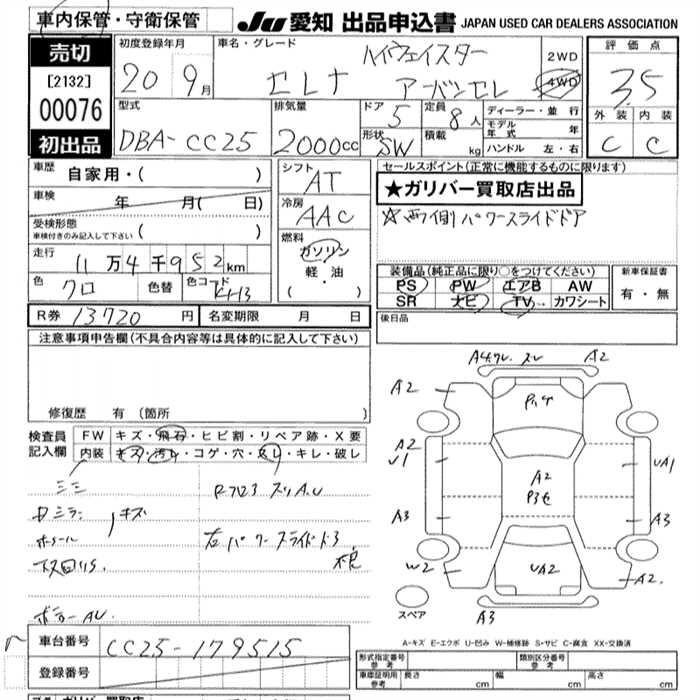 車内保管・守衛保管
JU 愛知 出品申込書 JAPAN USED CAR DEALERS ASSOCIATION
売切
[2132]
00076
初出品
初度登録年月
20 9月
車名・グレード
ハイウェイスター
セレナ アーバンセレ
2WD
4WD
評価点
3.5
外装 内装
C C
型式
DBA-CC25
排気量
2000cc
ドア 5
形状 SW
定員 8人
積載 kg
ディーラー・並行
モデル年式 年
ハンドル 左・右
車歴 自家用・( )
車検 年 月( 日)
受検形態
車検付きのみ記入して下さい ( )
走行
11万4千952km
色 クロ 色替 色コード KH3
シフト AT
冷房 AAC
燃料
ガソリン
軽・油
( ・ )
セールスポイント(正常に機能するものに限ります)
★ガリバー買取店出品
☆両側パワースライドドア
装備品(純正品に限り○をつけてください)
PS PW エアB AW
SR ナビ TV カワシート
新車保証書
有・無
後日品
R券 13720円 名変期限 月 日
注意事項申告欄(不具合内容等は具体的に記入して下さい)
修復歴 有 (箇所 )
検査員記入欄
FW キズ・飛石・ヒビ割・リペア跡・X要
内装 キズ・汚レ・コゲ・穴・スレ・キレ・破レ
キズ
左パワースライドドア
不良
A2
A2
A2
U1
A3
W2
A2
UA2
UA1
A3
A2
A3
スペア
A-キズ E-エクボ U-凹み W-補修跡 S-サビ C-腐食 XX-交換済
車台番号 CC25-179515
登録番号
形式指定番号 参考
類別区分番号 参考
車庫証明用 参考 長さ 幅 高さ
cm cm cm